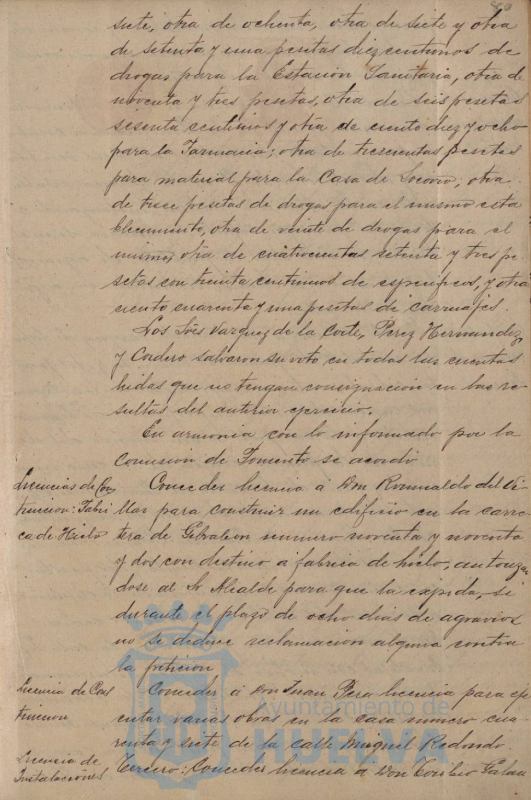 80
siete, otra de ochenta, otra de siete y otra
de setenta y una pesetas diez centimos de
drogas para la Estacion Sanitaria, otra de
noventa y tres pesetas, otra de seis pesetas
sesenta centimos y otra de ciento diez y ocho
para la Farmacia; otra de trescientas pesetas
para material para la Casa de Socorro, otra
de trece pesetas de drogas para el mismo esta
blecimiento, otra de veinte de drogas para el
mismo, otra de cuatrocientas setenta y tres pe
setas con treinta centimos de especificos, y otra
ciento cuarenta y una pesetas de carruajes.
Los Sres Vazquez de la Corte, Perez Hernandez,
y Cordero salvaron su voto en todas las cuentas
leidas que no tengan consignacion en las re-
sultas del anterior ejercicio.
En armonia con lo informado por la
Comision de Fomento se acordó
Licencias de Cons
truccion: Fabri
ca de Hielo
Conceder licencia á Don Romualdo del
Mar para construir un edificio en la carre
tera de Gibraleon numero noventa y noventa
y dos con destino á fabrica de hielo, autorizan
dose al Sr Alcalde para que la expida, si
durante el plazo de ocho dias de agravios
no se deduce reclamacion alguna contra
la peticion
Licencia de Cons
truccion
Conceder á Don Juan Pera licencia para eje
cutar varias obras en la casa numero cua
renta y siete de la calle Miguel Redondo.
Licencia de
Instalaciones
Tercero: Conceder licencia á Don Toribio
Ayuntamiento de
HUELVA